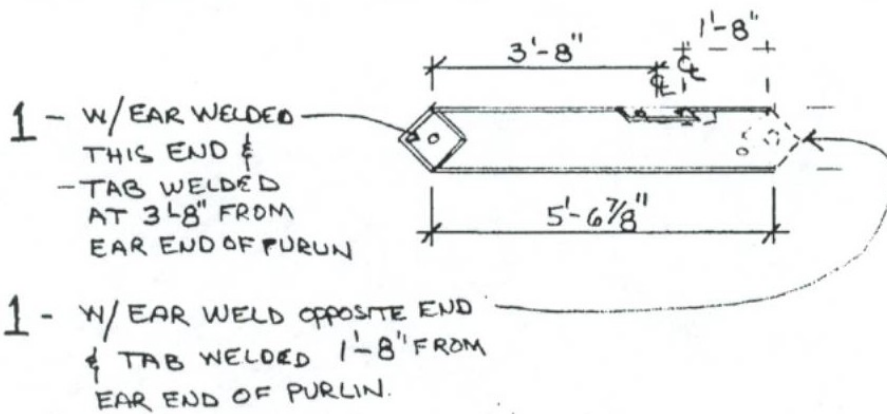 1'-8"
3'-8"
℄
℄
1 - W/ EAR WELDED
THIS END &
- TAB WELDED
AT 3'-8" FROM
EAR END OF PURLIN
5'-6 7/8"
1 - W/ EAR WELD OPPOSITE END
& TAB WELDED 1'-8" FROM
EAR END OF PURLIN.